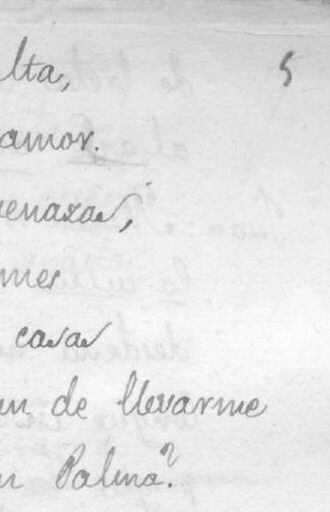 lta, 5
amor.
enazas,
mes
casas
an de llevarme
n Palma?